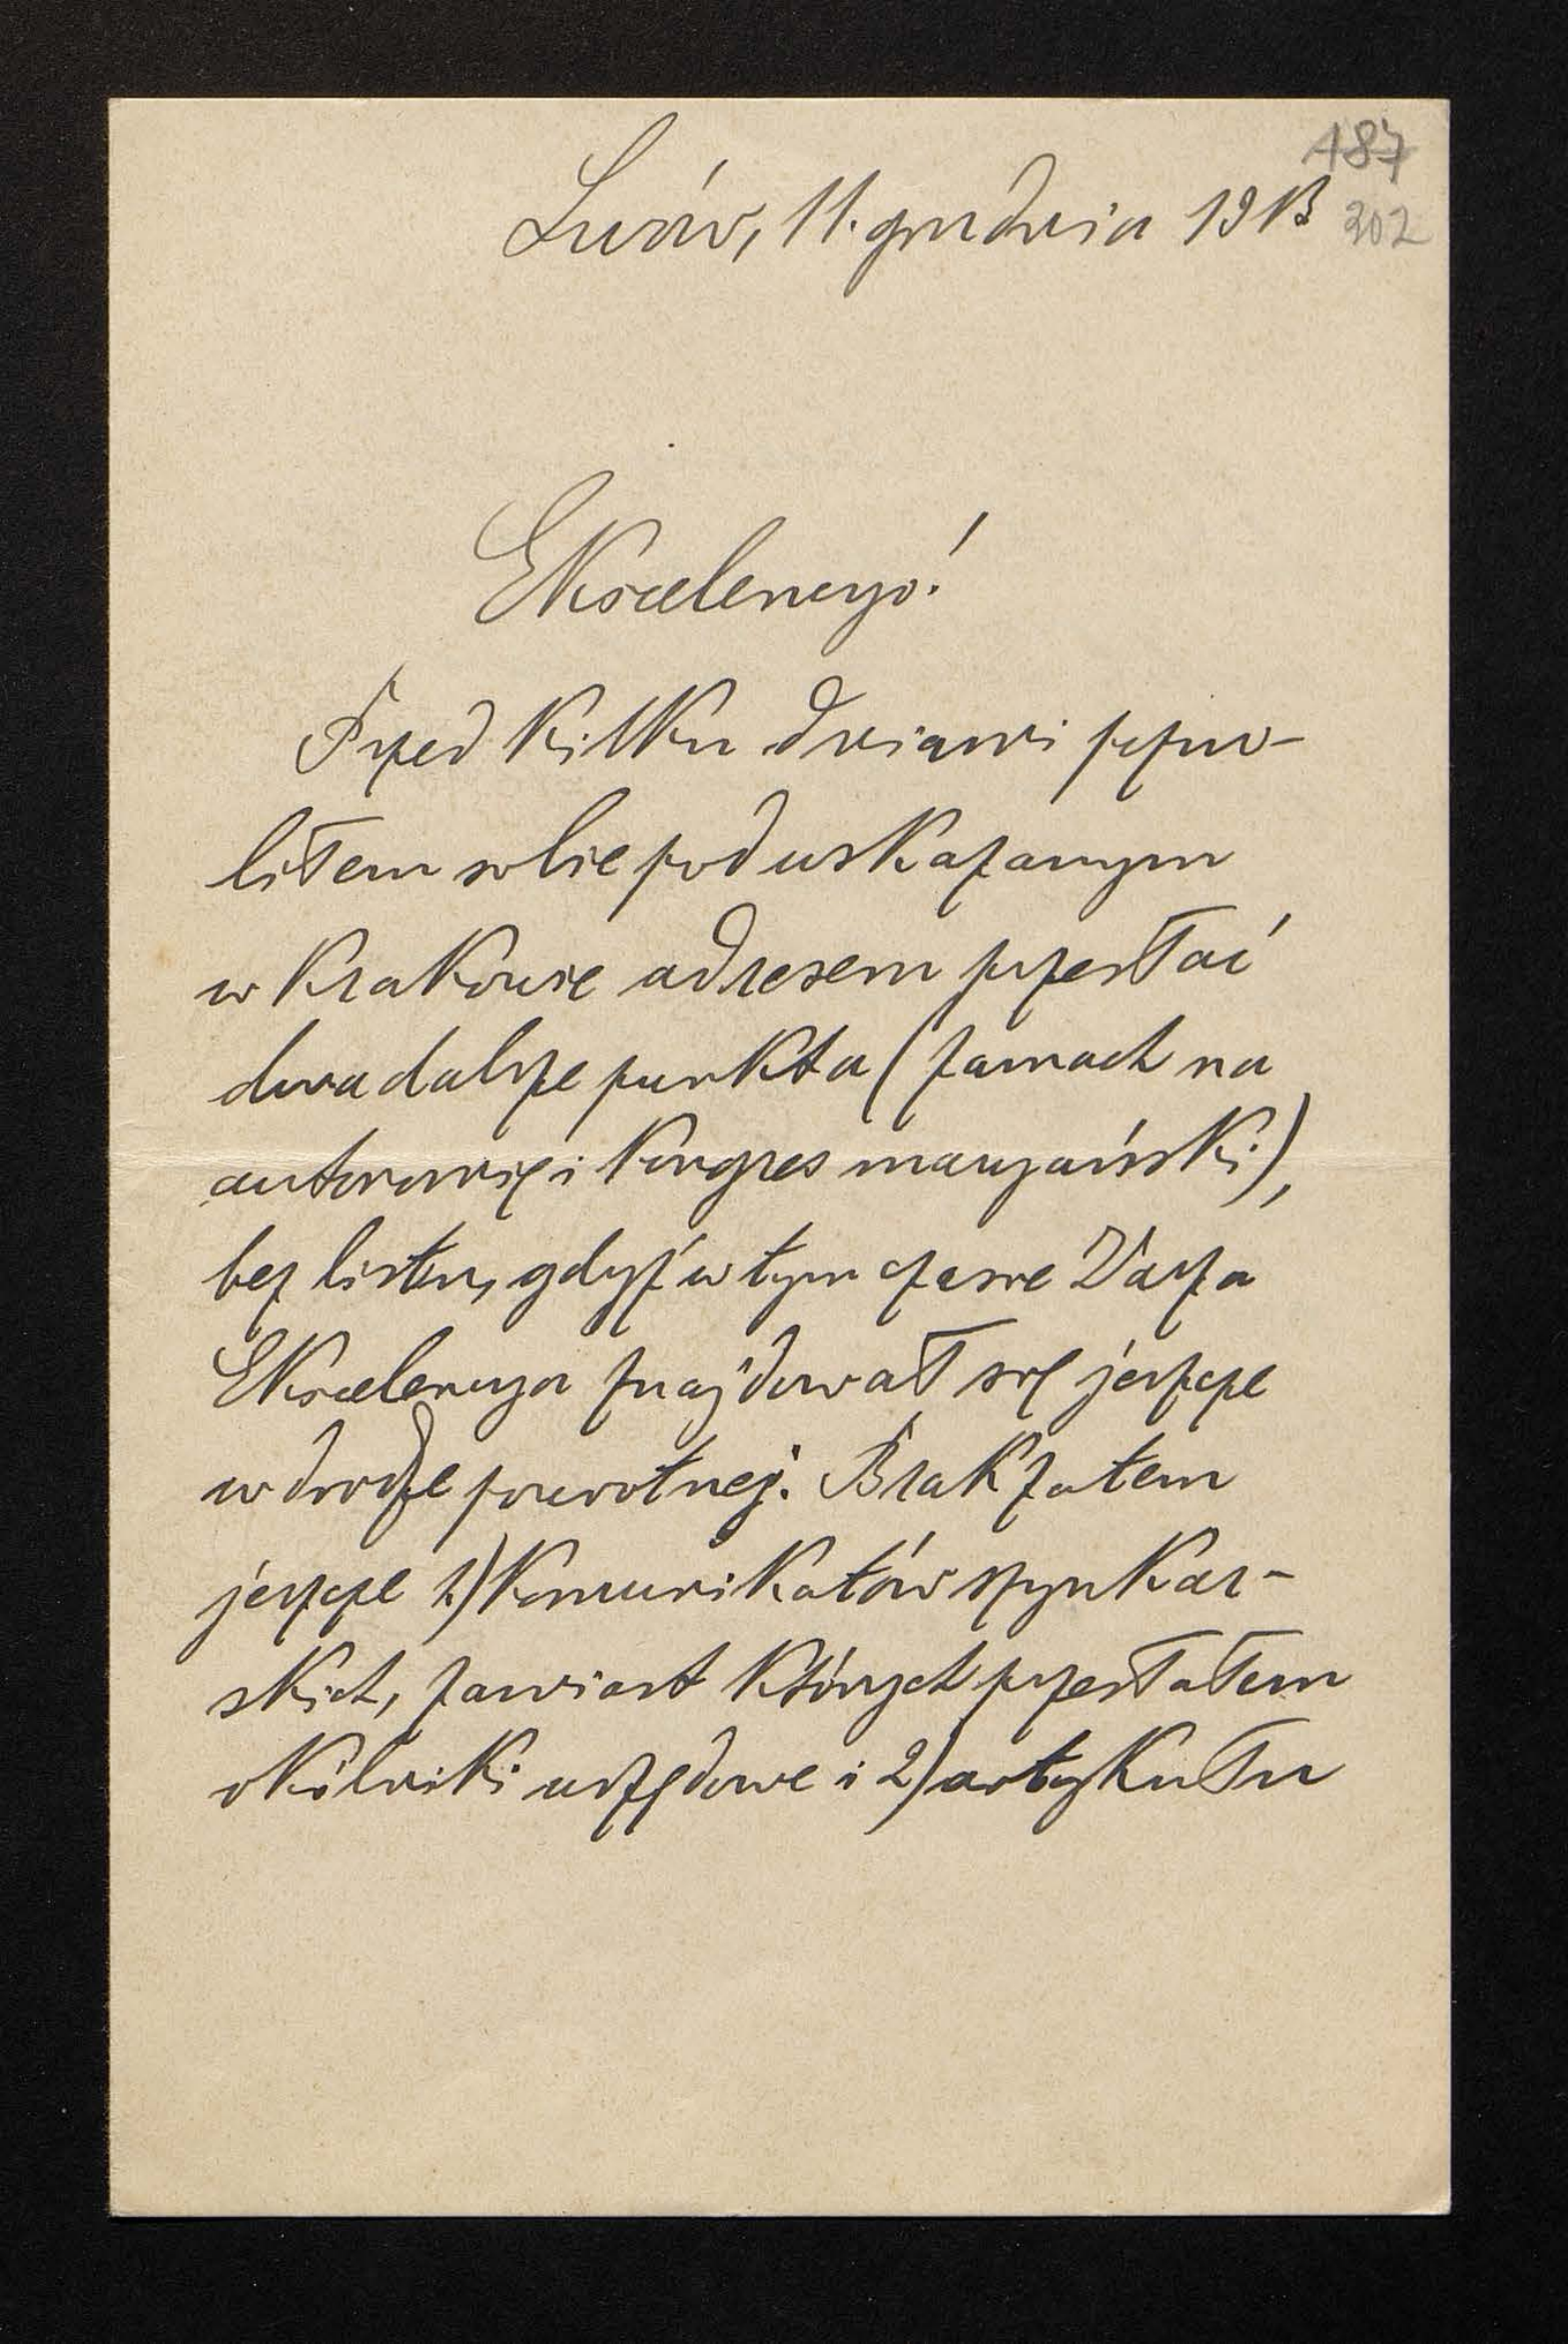 187
Lwów, 11. grudnia 1913 202
Ekscelencyo!
Przed kilku dniami pozwo-
liłem sobie pod wskazanym
w Krakowie adresem przesłać
dwa dalsze punkta (zamach na
autonomię i Kongres maryański),
bez listu, gdyż w tym czasie Wasza
Ekscelencya znajdował się jeszcze
w drodze powrotnej. Brak zatem
jeszcze 1) Komunikatów szynkar-
skich, zamiast których przesłałem
okólniki urzędowe i 2) artykułu